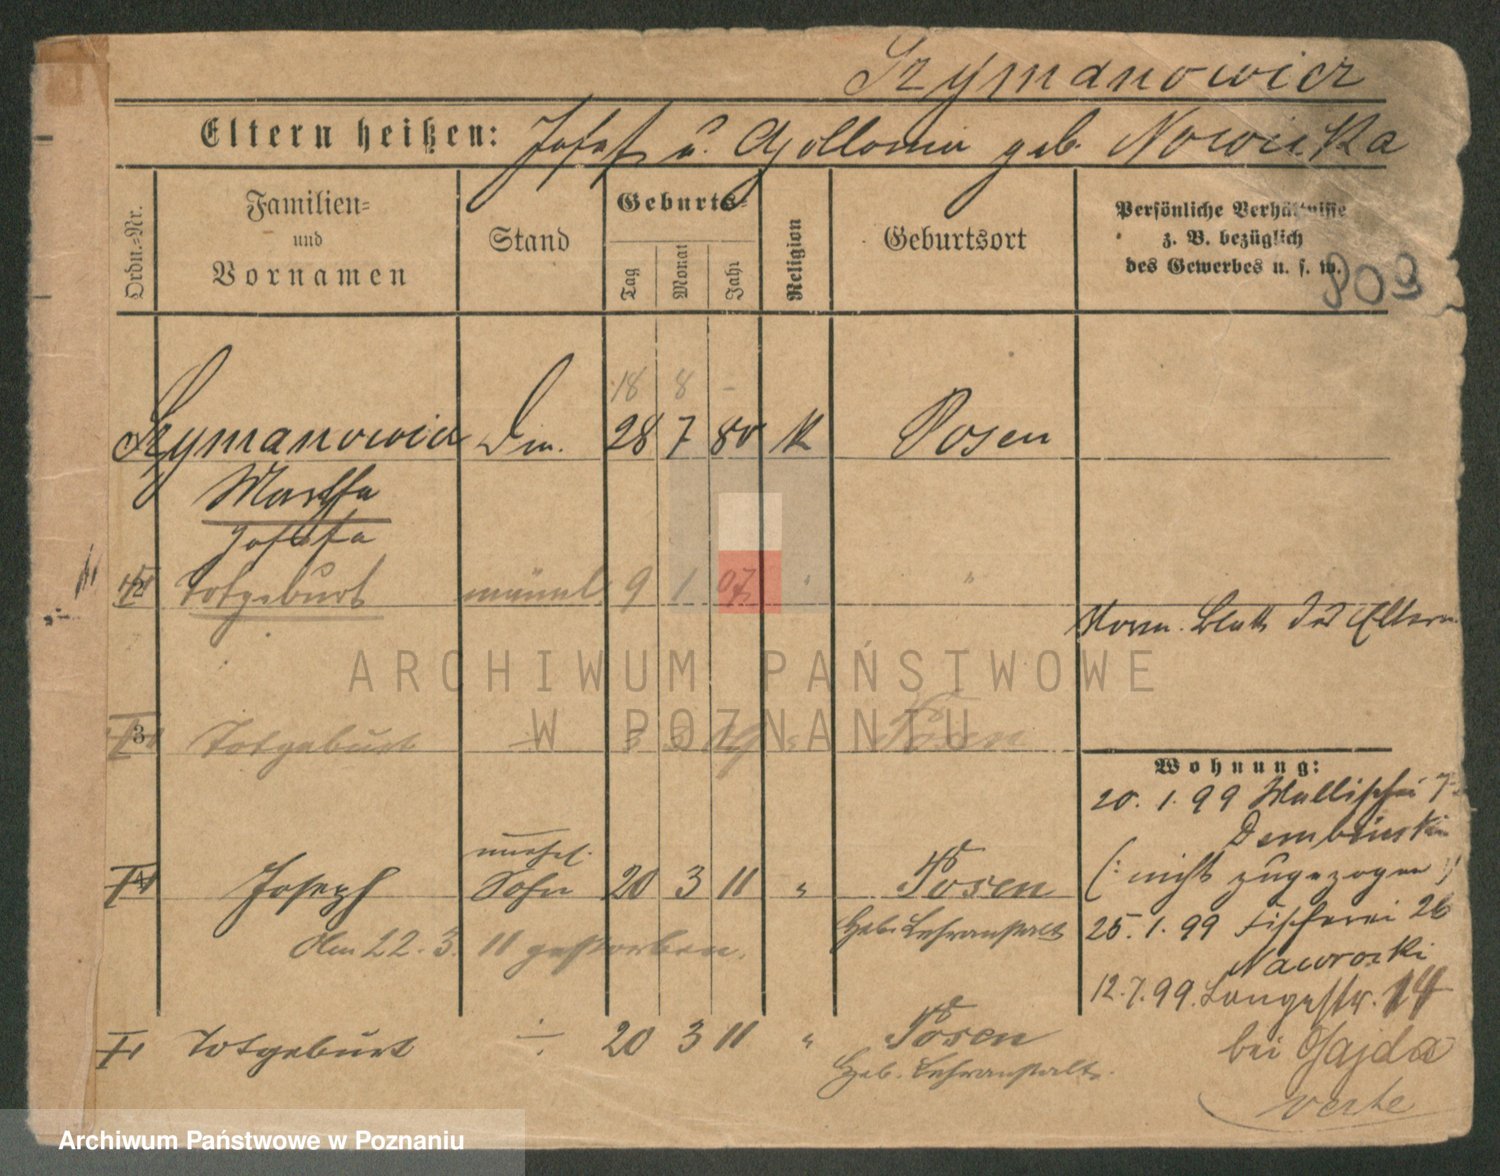 Szymanowicz
Eltern heißen: Josef u. Apollonia geb. Nowicka
Ordn.=Nr.
Familien=
und
Vornamen
Stand
Geburts=
Tag
Monat
Jahr
Religion
Geburtsort
Persönliche Verhältnisse
z. B. bezüglich
des Gewerbes u. s. w.
809
18 8 -
Szymanowicz 28 7 80 k Posen
Martha
Josefa
2 Totgeburt männl 9 1 07 " "
Blatt der Eltern
ARCHIWUM PAŃSTWOWE
W POZNANIU
3 Totgeburt Posen
Wohnung:
20. 1. 99 Wallischei 7
Dembinski
(: nicht zugezogen :)
unehel.
4 Joseph Sohn 20 3 11 " Posen
Heb. Lehranstalt
25. 1. 99 Fischerei 26
Am 22. 3. 11 gestorben.
Nawrocki
12. 7. 99. Langestr. 14
Totgeburt ÷ 20 3 11 " Posen
Heb. Lehranstalt.
bei Gajda
verte
Archiwum Państwowe w Poznaniu